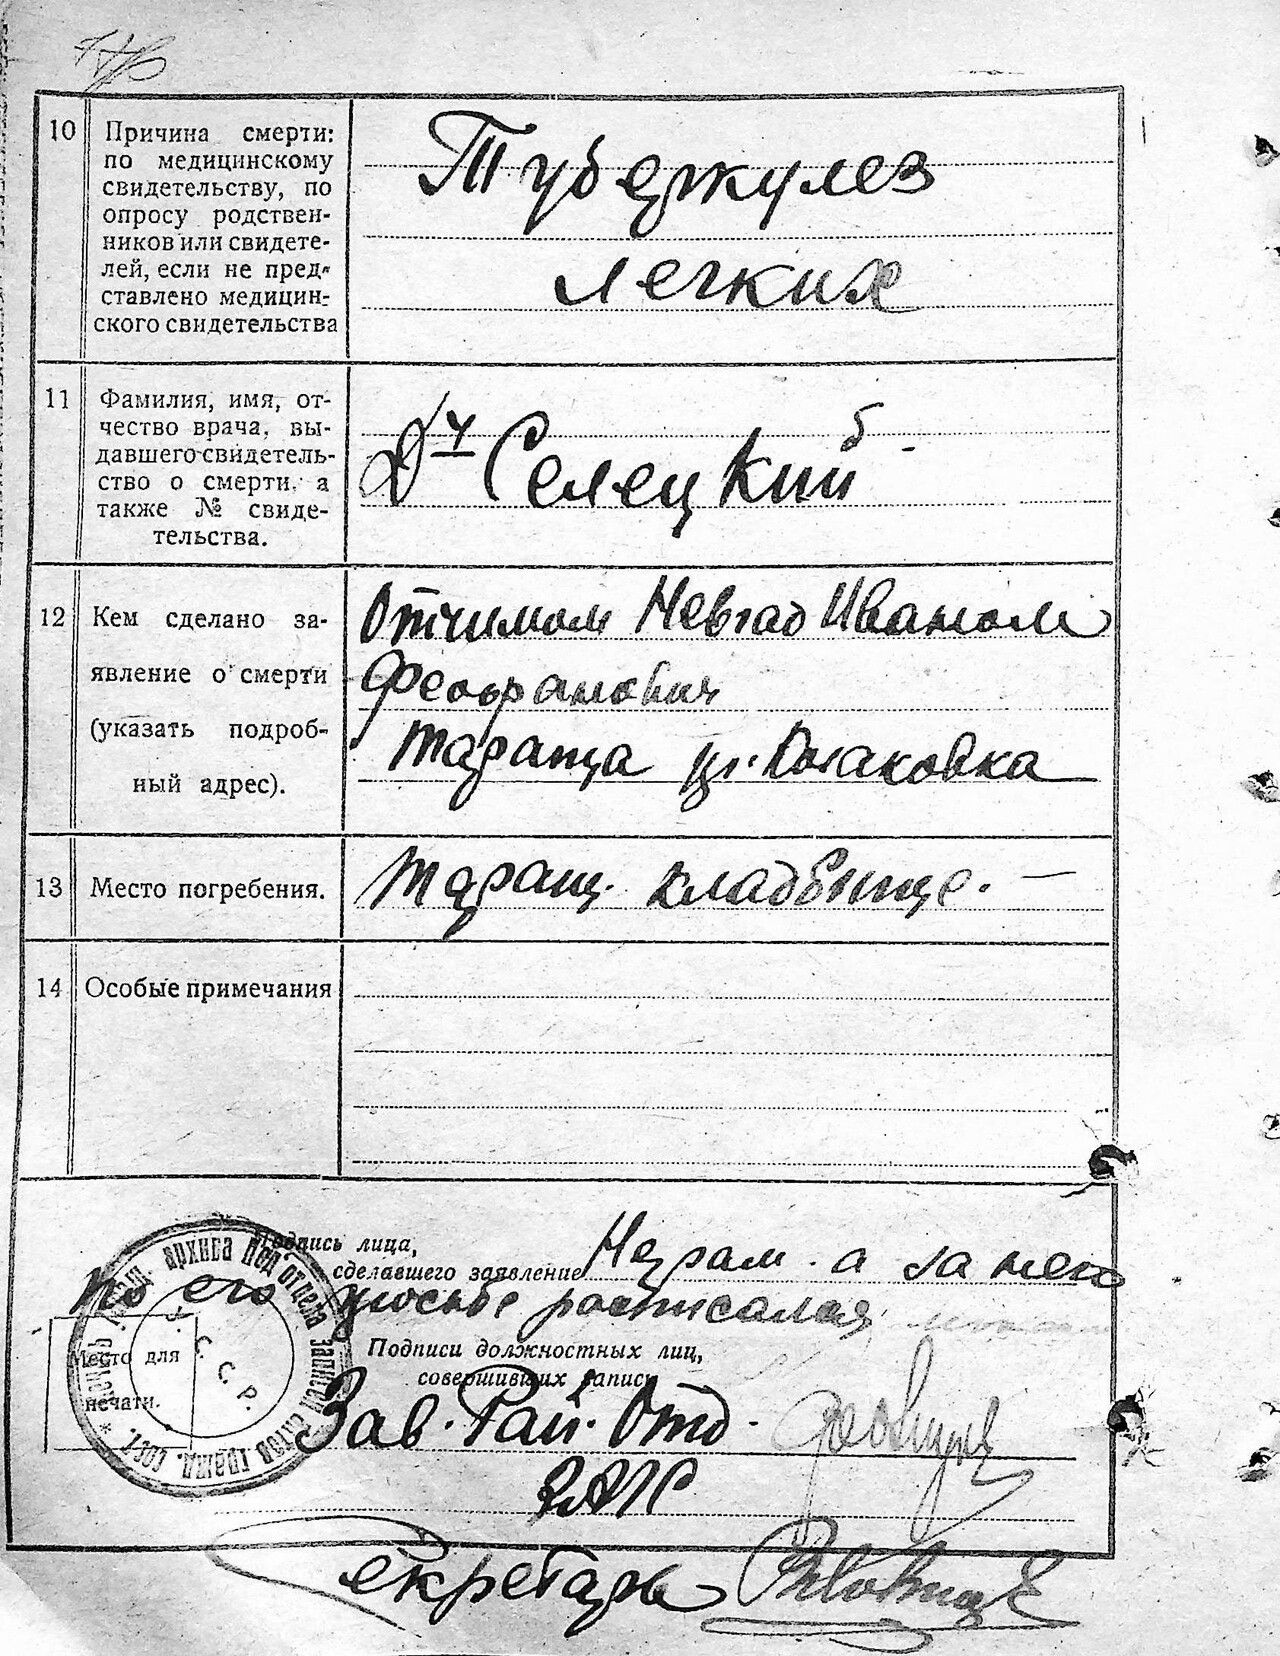 10
Причина смерти:
по медицинскому
свидетельству, по
опросу родствен-
ников или свидете-
лей, если не пред-
ставлено медицин-
ского свидетельства
Туберкулез
легких
11
Фамилия, имя, от-
чество врача, вы-
давшего свидетель-
ство о смерти, а
также № свиде-
тельства.
Селецкий
12
Кем сделано за-
явление о смерти
(указать подроб-
ный адрес).
Отчимом Невгад Иваном
Феофанович
Тараща ул. Казаковка
13
Место погребения.
Таращ. кладбище. —
14
Особые примечания
Подпись лица,
сделавшего заявление
Неграм. а за него
по его просьбе росписался
Подписи должностных лиц,
совершивших запись
Место для
печати.
архива Под отдела записей актов гражд. сост.
С. С. Р.
Зав. Рай. Отд.
ЗАГС
Секретарь